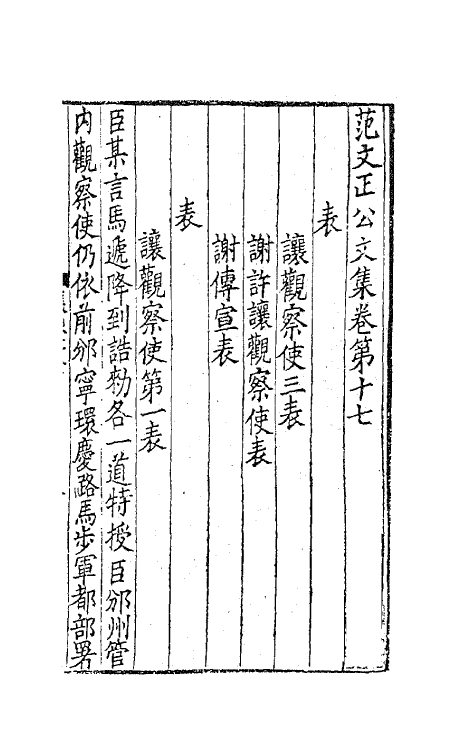 范文正公文集卷第十七
表
讓觀察使三表
謝許讓觀察使表
謝傳宣表
表
讓觀察使第一表
臣某言馬遞降到誥勑各一道特授臣邠州管
内觀察使仍依前邠寧環慶路馬步軍都部署